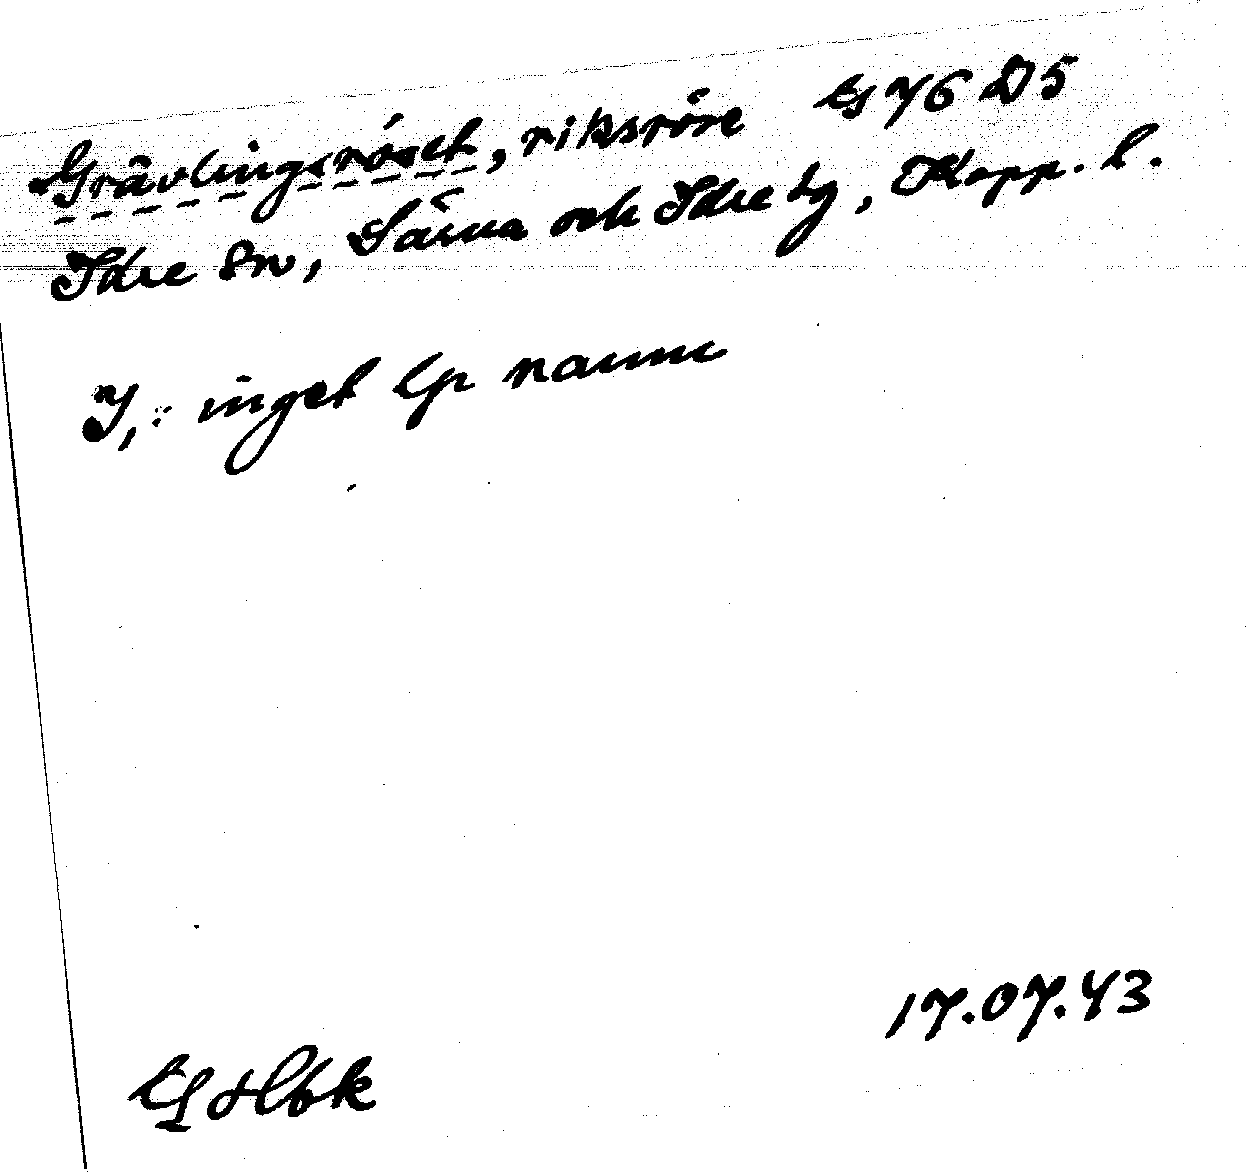 Grävlingsröset, riksröse G 76 D5
Idre sn, Särna och Idre tg, Kopp. l.
J,: inget lp namn
17.07.43
GHlbk